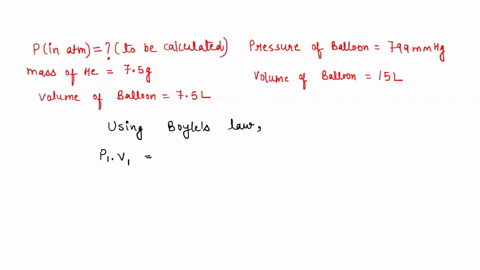 P(in atm) = ? (to be calculated) Pressure of Balloon = 799 mmHg
mass of He = 7.5g
Volume of Balloon = 15L
Volume of Balloon = 7.5L
Using Boyle's law,
P₁.V₁ =